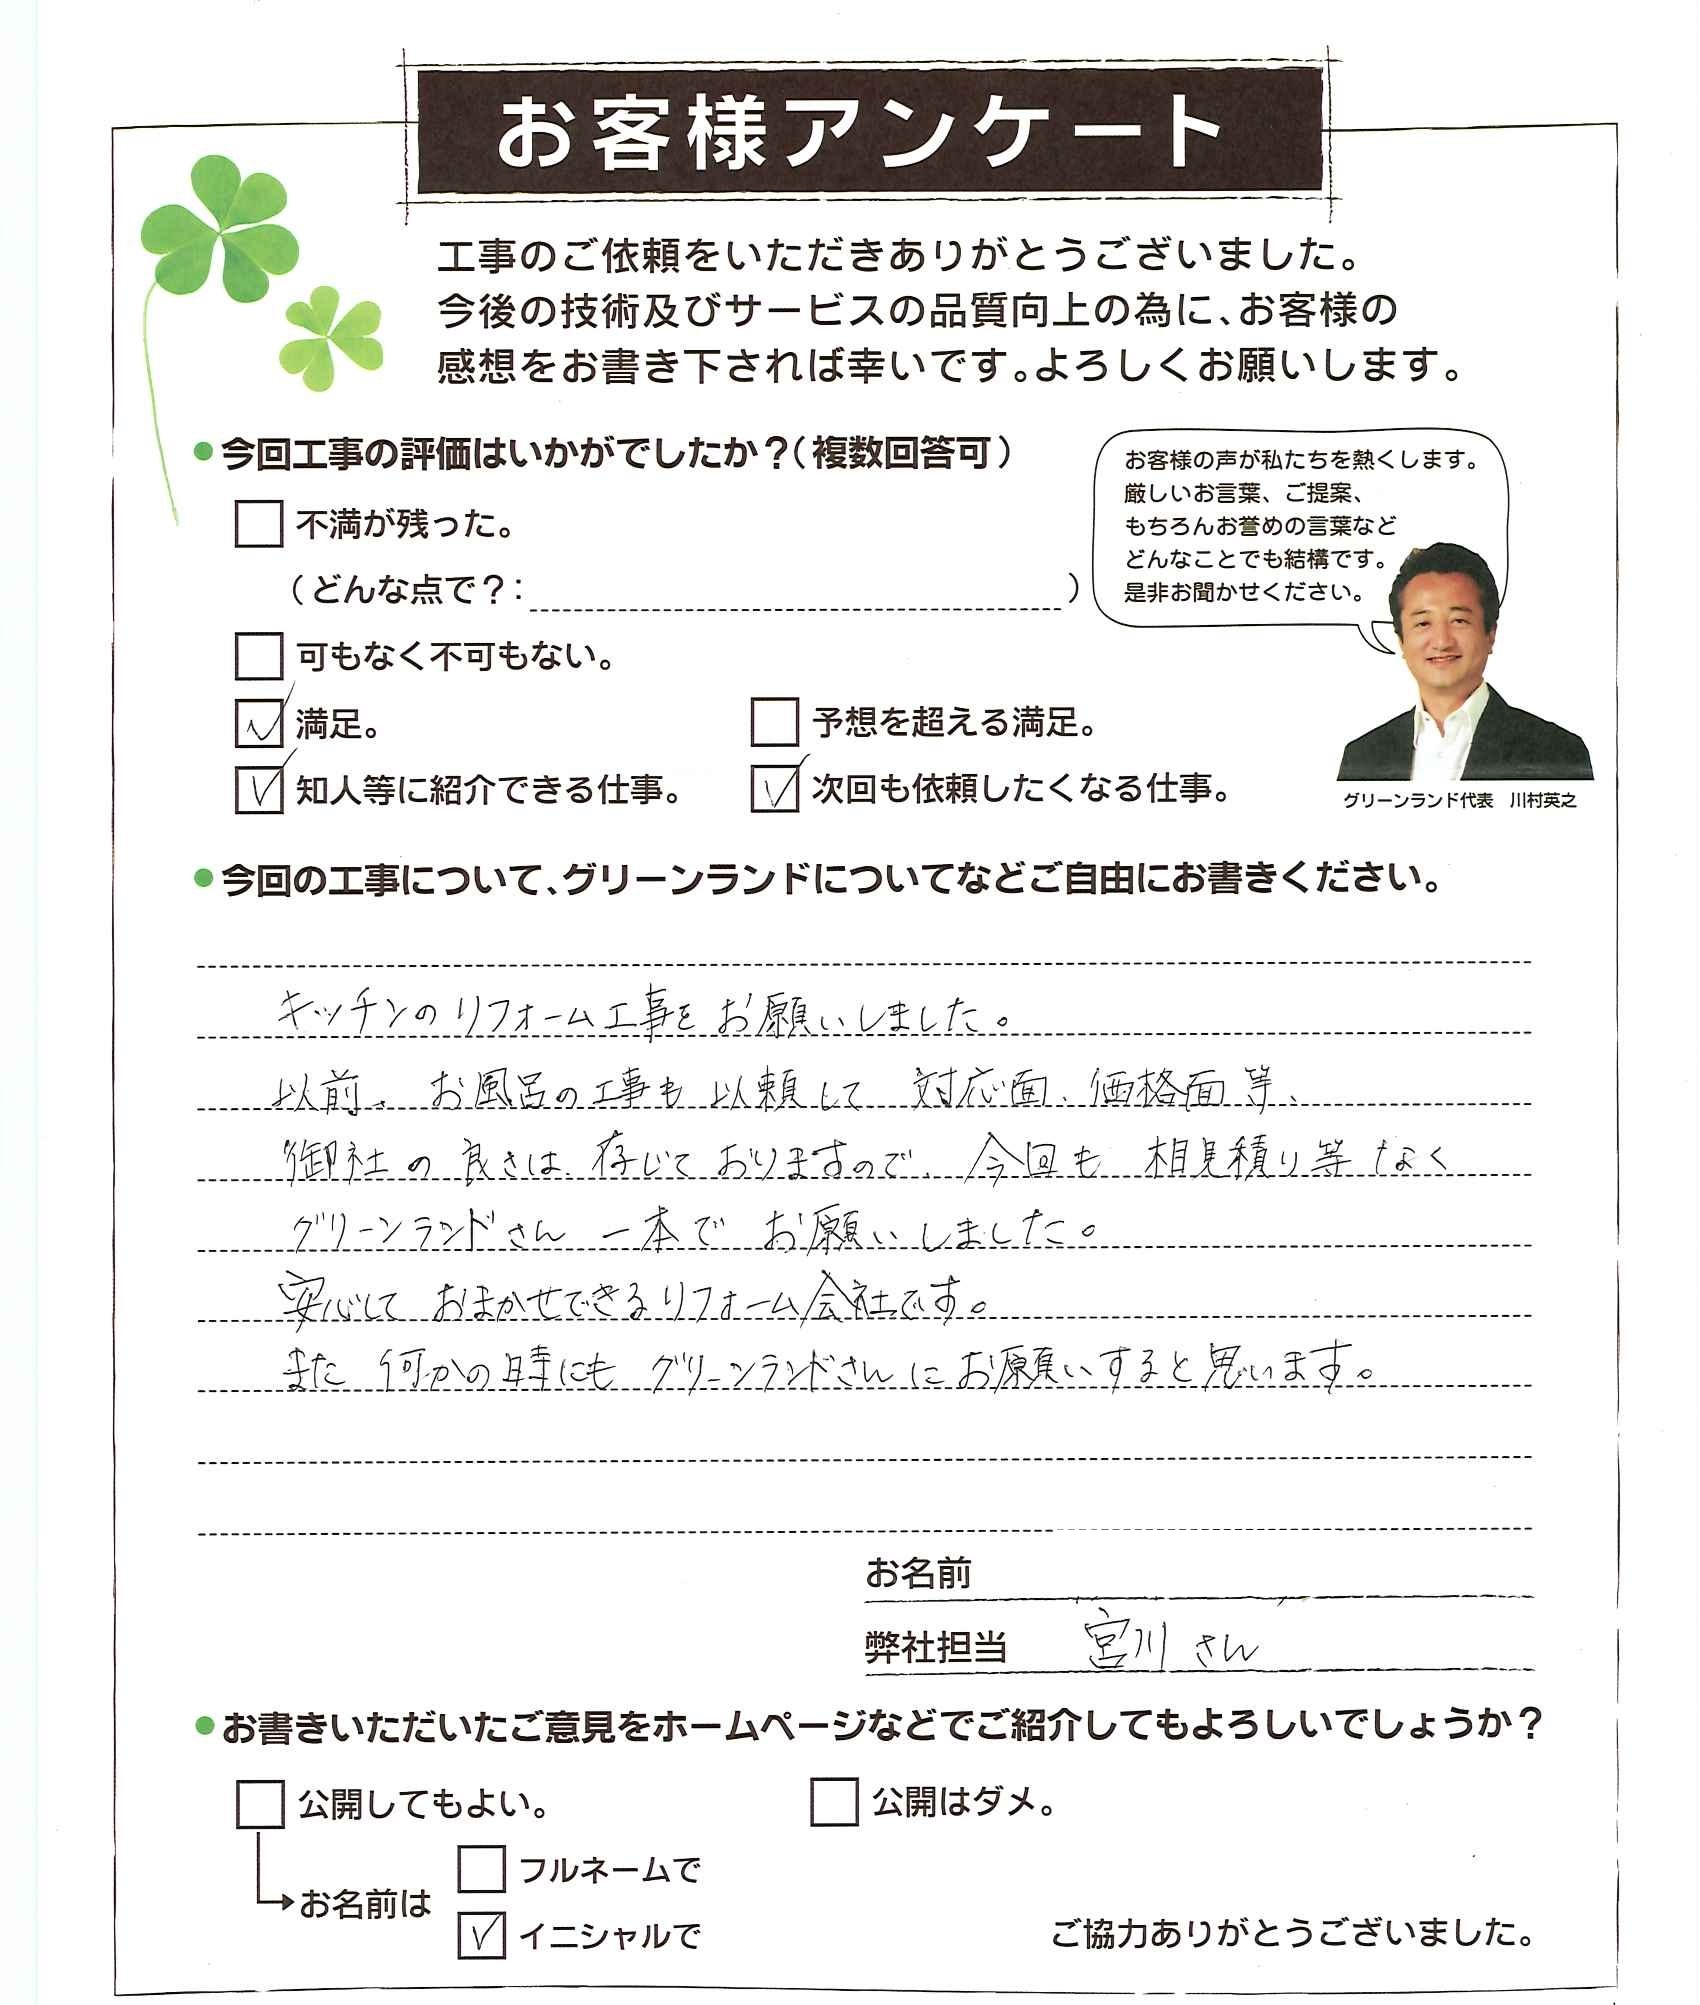 お客様アンケート
工事のご依頼をいただきありがとうございました。
今後の技術及びサービスの品質向上の為に、お客様の
感想をお書き下されば幸いです。よろしくお願いします。
●今回工事の評価はいかがでしたか?(複数回答可)
お客様の声が私たちを熱くします。
厳しいお言葉、ご提案、
もちろんお誉めの言葉など
どんなことでも結構です。
是非お聞かせください。
不満が残った。
(どんな点で?: )
可もなく不可もない。
満足。 予想を超える満足。
知人等に紹介できる仕事。 次回も依頼したくなる仕事。
グリーンランド代表 川村英之
●今回の工事について、グリーンランドについてなどご自由にお書きください。
キッチンのリフォーム工事をお願いしました。
以前、お風呂の工事も以頼して 対応面、価格面等、
御社の良さは、存じておりますので、今回も 相見積り等なく
グリーンランドさん 一本で お願いしました。
安心して おまかせできるリフォーム会社です。
また 何かの時にも グリーンランドさんに お願いすると思います。
お名前
弊社担当 宮川さん
●お書きいただいたご意見をホームページなどでご紹介してもよろしいでしょうか?
公開してもよい。 公開はダメ。
フルネームで
お名前は
イニシャルで
ご協力ありがとうございました。